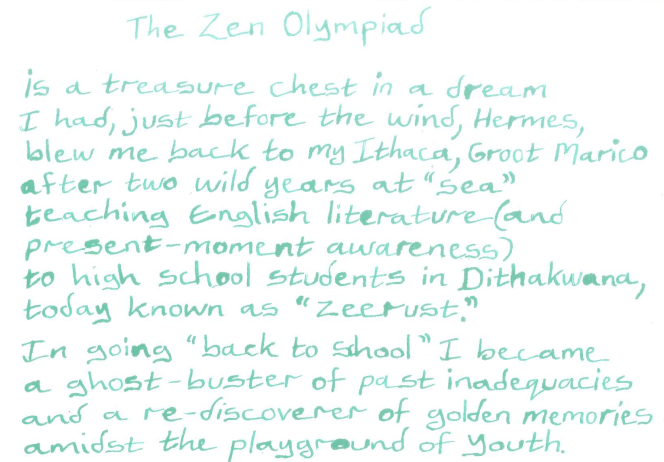 The Zen Olympiad
is a treasure chest in a dream
I had, just before the wind, Hermes,
blew me back to my Ithaca, Groot Marico
after two wild years at "sea"
teaching English literature (and
present-moment awareness)
to high school students in Dithakwana,
today known as "Zeerust."
In going "back to school" I became
a ghost-buster of past inadequacies
and a re-discoverer of golden memories
amidst the playground of Youth.